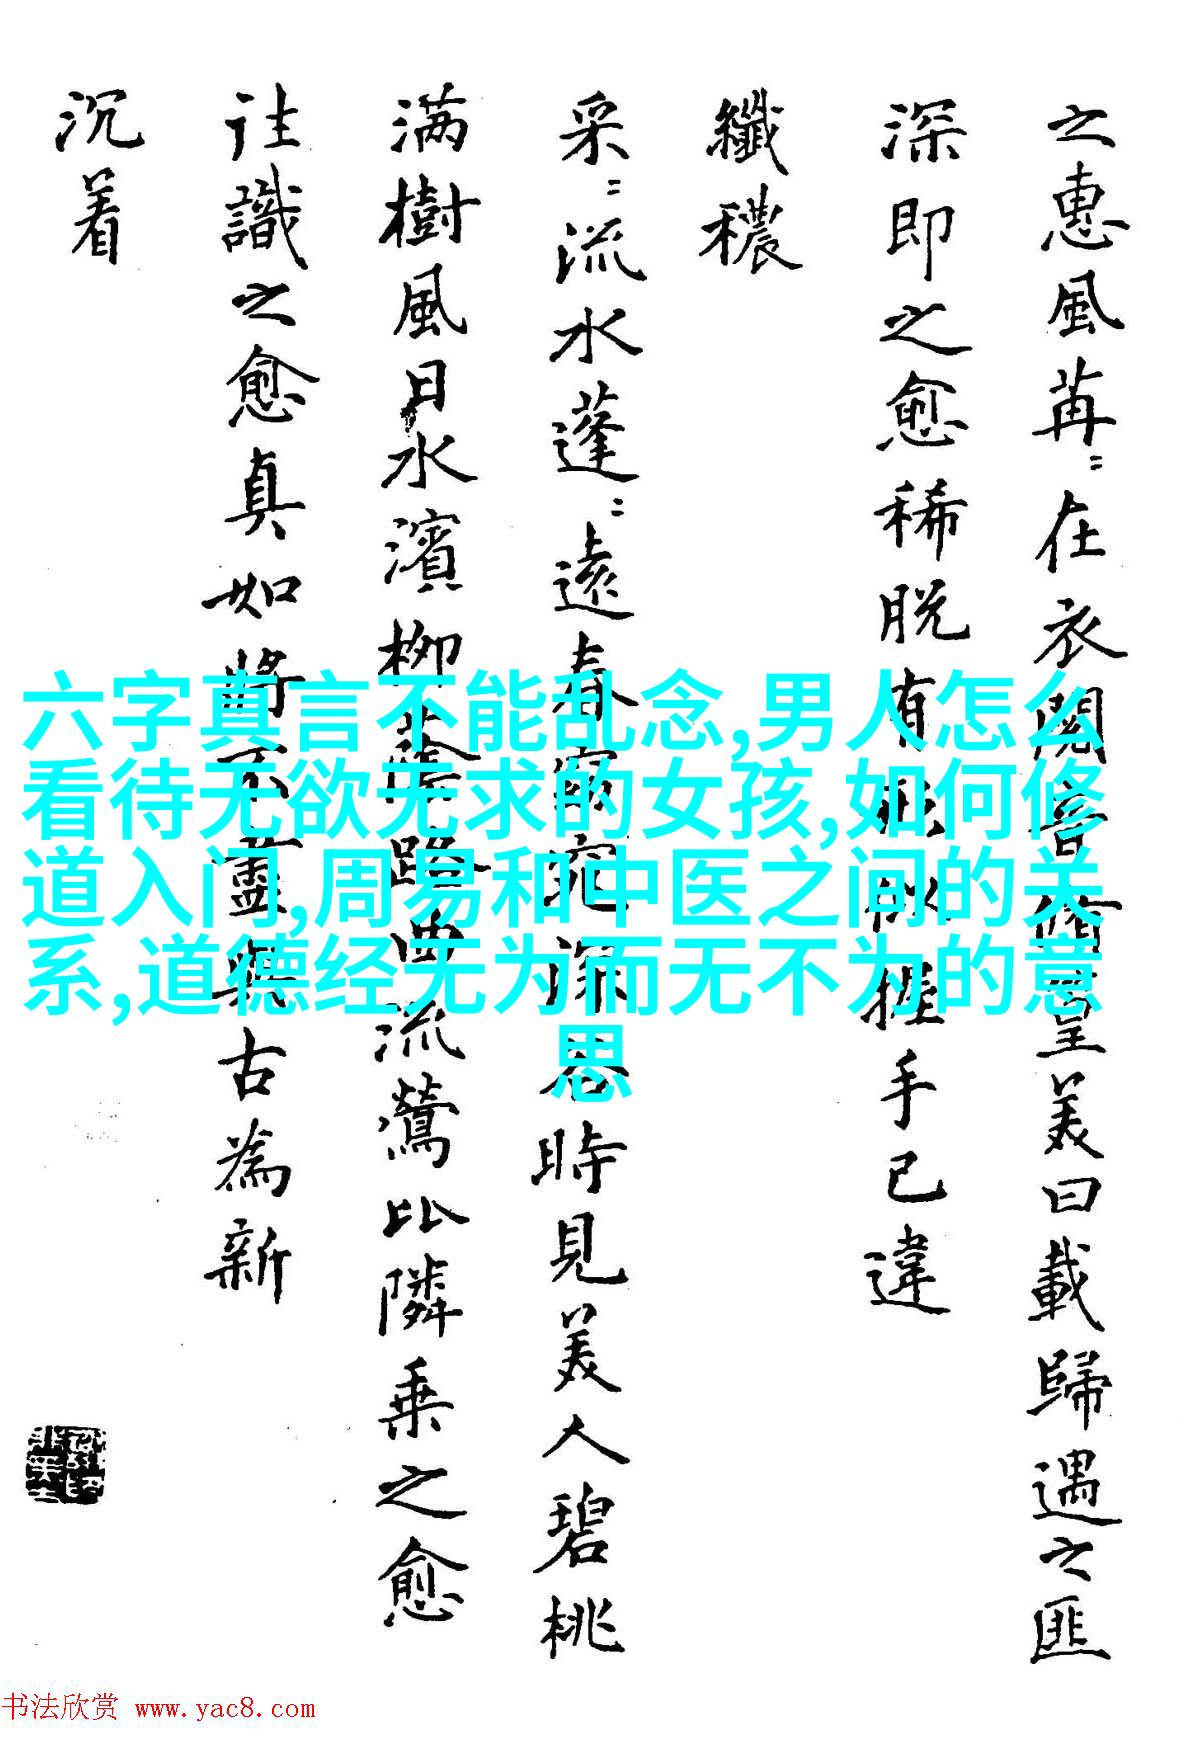 之惠風苒〻在衣閱音脩篁美曰載歸遇之匪
深即之愈稀脱有形似握手已違
纖穠
采〻流水蓬〻遠春窈窕深谷時見美人碧桃
满樹風日水濱柳陰路曲流鶯比隣乗之愈
往識之愈真如將不盡與古為新
沉着
六字真言不能乱念,男人怎么
看待无欲无求的女孩,如何修
道入门,周易和中医之间的关
系,道德经无为而无不为的意
思
书法欣赏 www.yac8.com